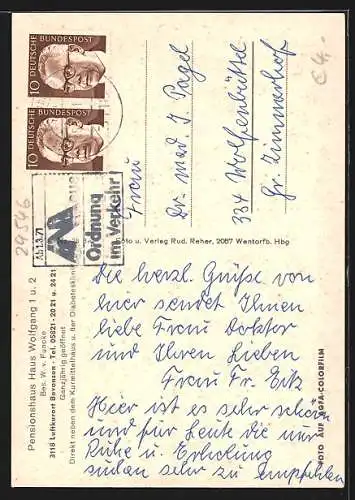 10 DEUTSCHE BUNDESPOST
10 DEUTSCHE BUNDESPOST
Ab 1.3.71
Ordnung
im Verkehr
€ 4,-
29546
Frau
Dr. med. J. Pagel
334 Wolfenbüttel
Gr. Zimmerhof
Foto u. Verlag Rud. Reher, 2057 Wentorfb. Hbg
Pensionshaus Haus Wolfgang 1 u. 2
Bes. W. v. Pancke
3118 Luftkurort Bevensen · Tel. 05821 - 20 21 u. 24 21
Ganzjährig geöffnet
Direkt neben dem Kurmittelhaus u. der Diabetesklinik
FOTO AUF AGFA-COLORFILM
Die herzl. Grüße von
hier sendet Ihnen
liebe Frau Doktor
und Ihren Lieben
Frau Fr. Eitz
Hier ist es sehr schön
und für Leute die nur
Ruhe u. Erholung
suchen sehr zu empfehlen